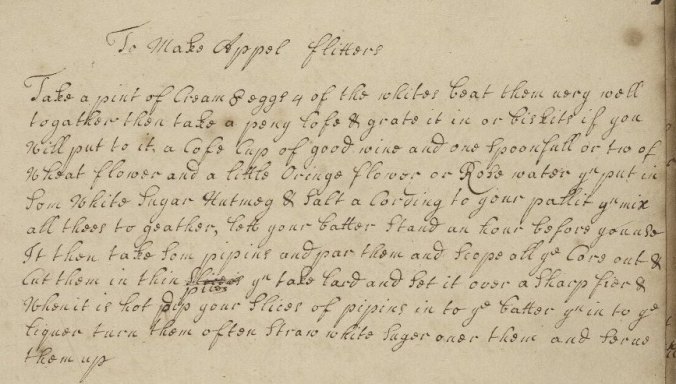 To Make Appel flitters
Take a pint of Cream 8 eggs 4 of the whites beat them uery well
togather then take a peny Lofe & grate it in or biskits if you
will put to it a Cofe Cup of good wine and one spoonfull or two of
wheat flower and a little Oringe flowor or Rose water yn put in
som white sugar Nutmeg & salt a Cording to your pallit yn mix
all thees to geather, lett your batter stand an hour before you use
It then take som pipins and par them and scope all ye Core out &
Cut them in thin slices pices yn take lard and set it over a sharp fier &
when it is hot dip your slices of pipins in to ye batter yn in to ye
liquer turn them often straw white suger ouer them and serue
them up